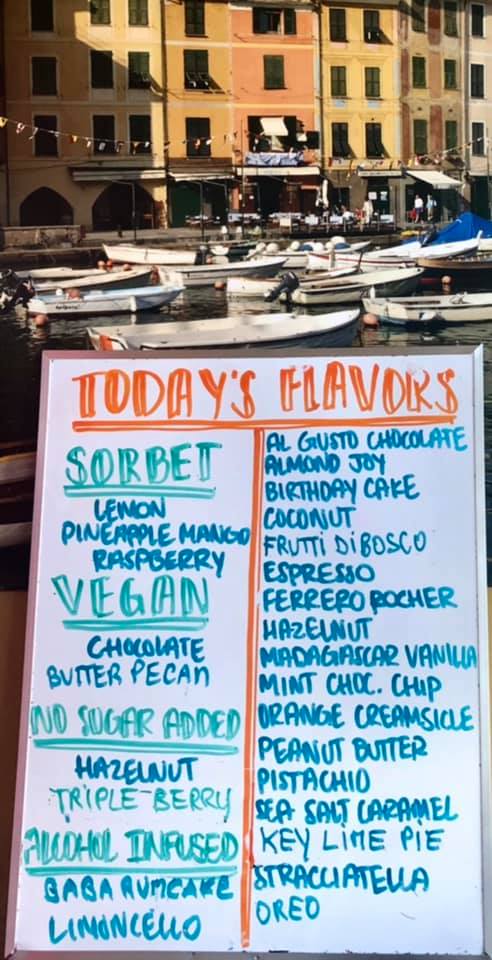 TODAY'S FLAVORS
SORBET
LEMON
PINEAPPLE MANGO
RASPBERRY
VEGAN
CHOCOLATE
BUTTER PECAN
NO SUGAR ADDED
HAZELNUT
TRIPLE-BERRY
ALCOHOL INFUSED
BABA RUMCAKE
LIMONCELLO
AL GIUSTO CHOCOLATE
ALMOND JOY
BIRTHDAY CAKE
COCONUT
FRUTTI DI BOSCO
ESPRESSO
FERRERO ROCHER
HAZELNUT
MADAGASCAR VANILLA
MINT CHOC. CHIP
ORANGE CREAMSICLE
PEANUT BUTTER
PISTACHIO
SEA SALT CARAMEL
KEY LIME PIE
STRACCIATELLA
OREO